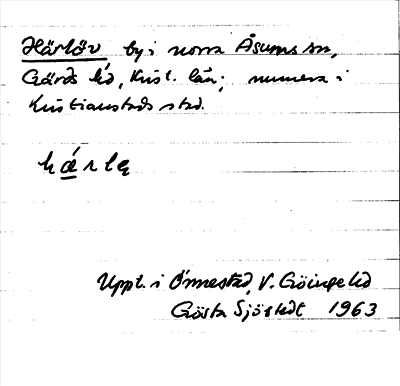 Härlöv by i norra Åsums sn,
Gärds hd, Krist. län; numera i
Kristianstads stad.
hárlę
Uppt. i Önnestad, V. Göinge hd
Gösta Sjöstedt 1963